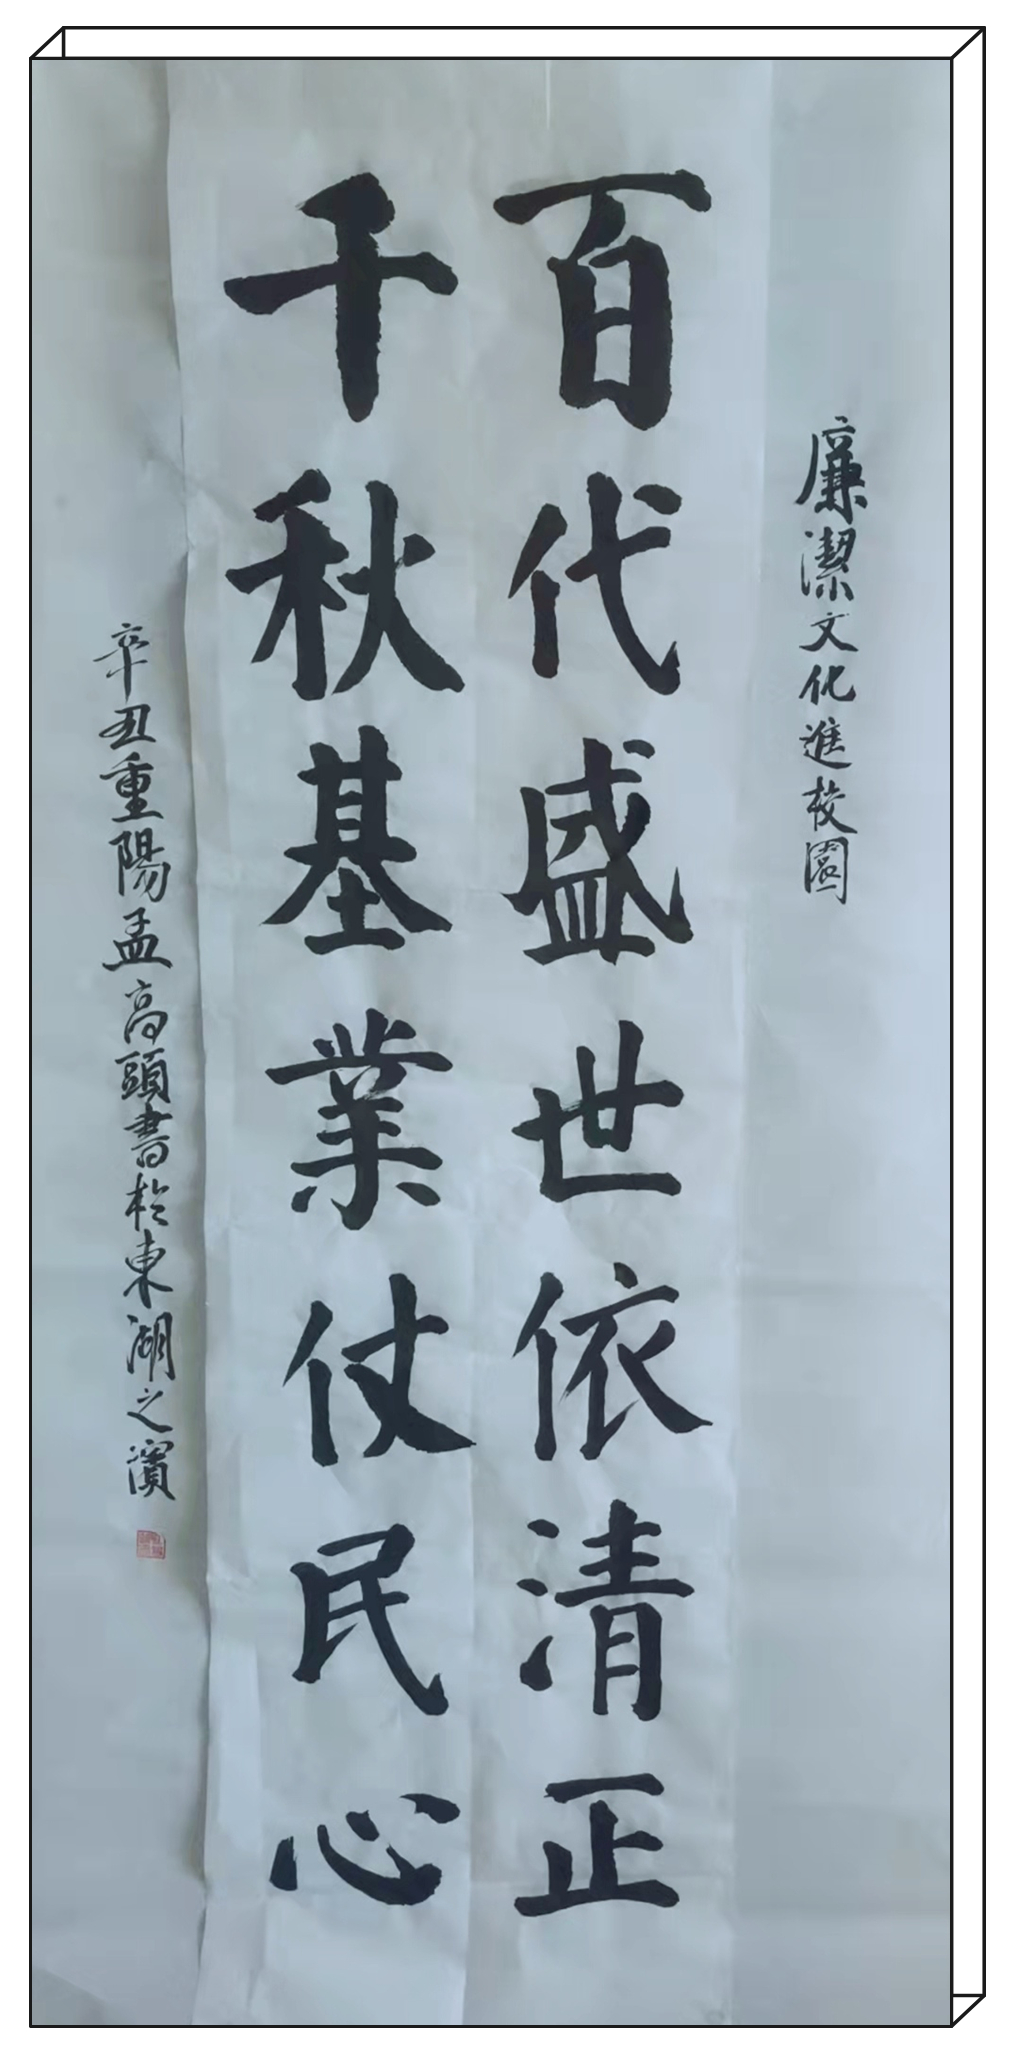 廉潔文化進校園
百代盛世依清正
千秋基業仗民心
辛丑重陽孟高頭書於東湖之濱